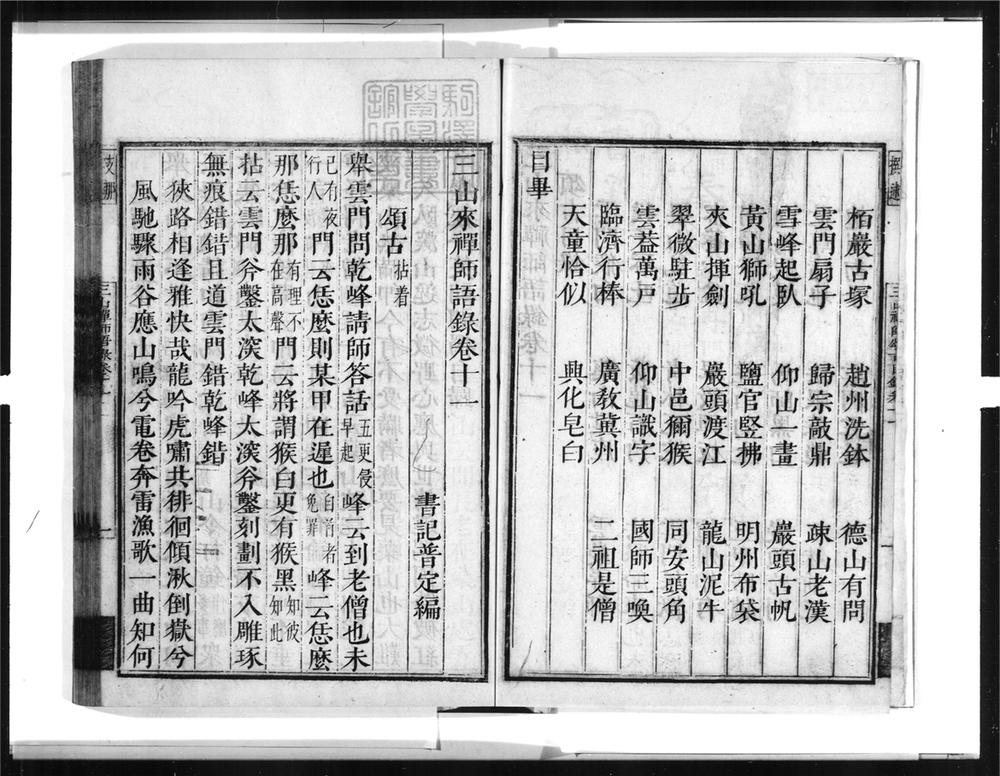 栢巖古塚 趙州洗鉢 德山有問
雲門扇子 歸宗敲鼎 疎山老漢
雪峰起臥 仰山一畫 巖頭古帆
黃山獅吼 鹽官竪拂 明州布袋
夾山揮劍 巖頭渡江 龍山泥牛
翠微駐步 中邑獼猴 同安頭角
雲葢萬戶 仰山識字 國師三喚
臨濟行棒 廣教冀州 二祖是僧
天童恰似 興化皂白
目畢
三山來禪師語錄卷十一
書記普定編
頌古 拈着
舉雲門問乾峰請師答話 五更侵早起 峰云到老僧也未
已有夜行人 門云恁麼則某甲在遲也 自首者免罪 峰云恁麼
那恁麼那 有理不在高聲 門云將謂猴白更有猴黑 知彼知此
拈云雲門斧鑿太深乾峰太深斧鑿刻劃不入雕琢
無痕錯錯且道雲門錯乾峰錯
狹路相逢雅快哉龍吟虎嘯共徘徊傾湫倒嶽兮
風馳驟雨谷應山鳴兮電卷奔雷漁歌一曲知何
支那